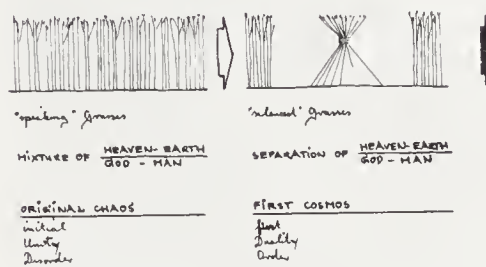 "speaking" Grasses
MIXTURE OF HEAVEN-EARTH
GOD - MAN
ORIGINAL CHAOS
initial
Unity
Disorder
"silenced" Grasses
SEPARATION OF HEAVEN-EARTH
GOD - MAN
FIRST COSMOS
first
Duality
Order